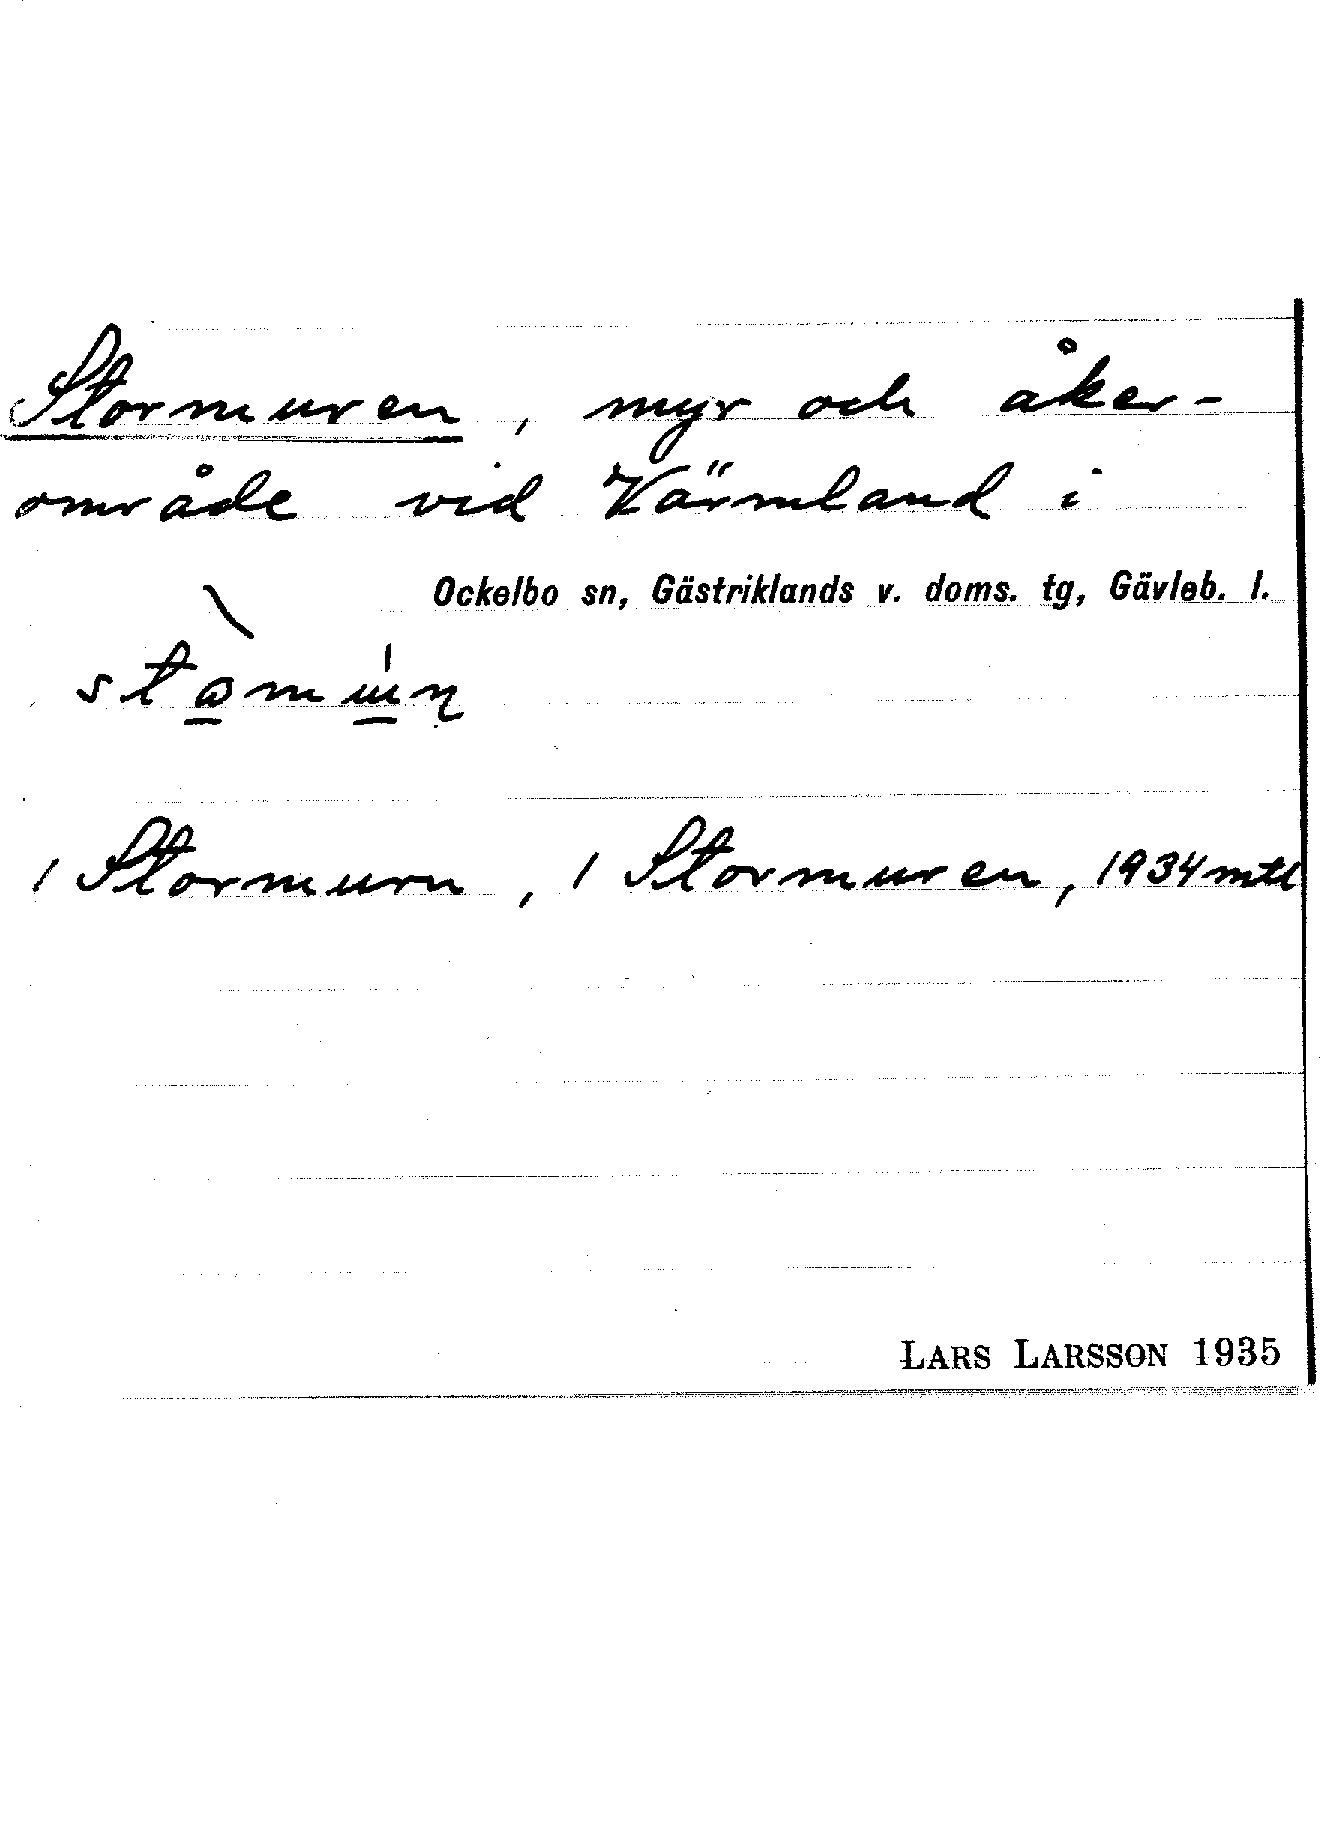 Stormuren, myr och åker-
område vid Värmland i
Ockelbo sn, Gästriklands v. doms. tg, Gävleb. l.
/ Stormurn, / Stormuren, 1934 mtl
LARS LARSSON 1935